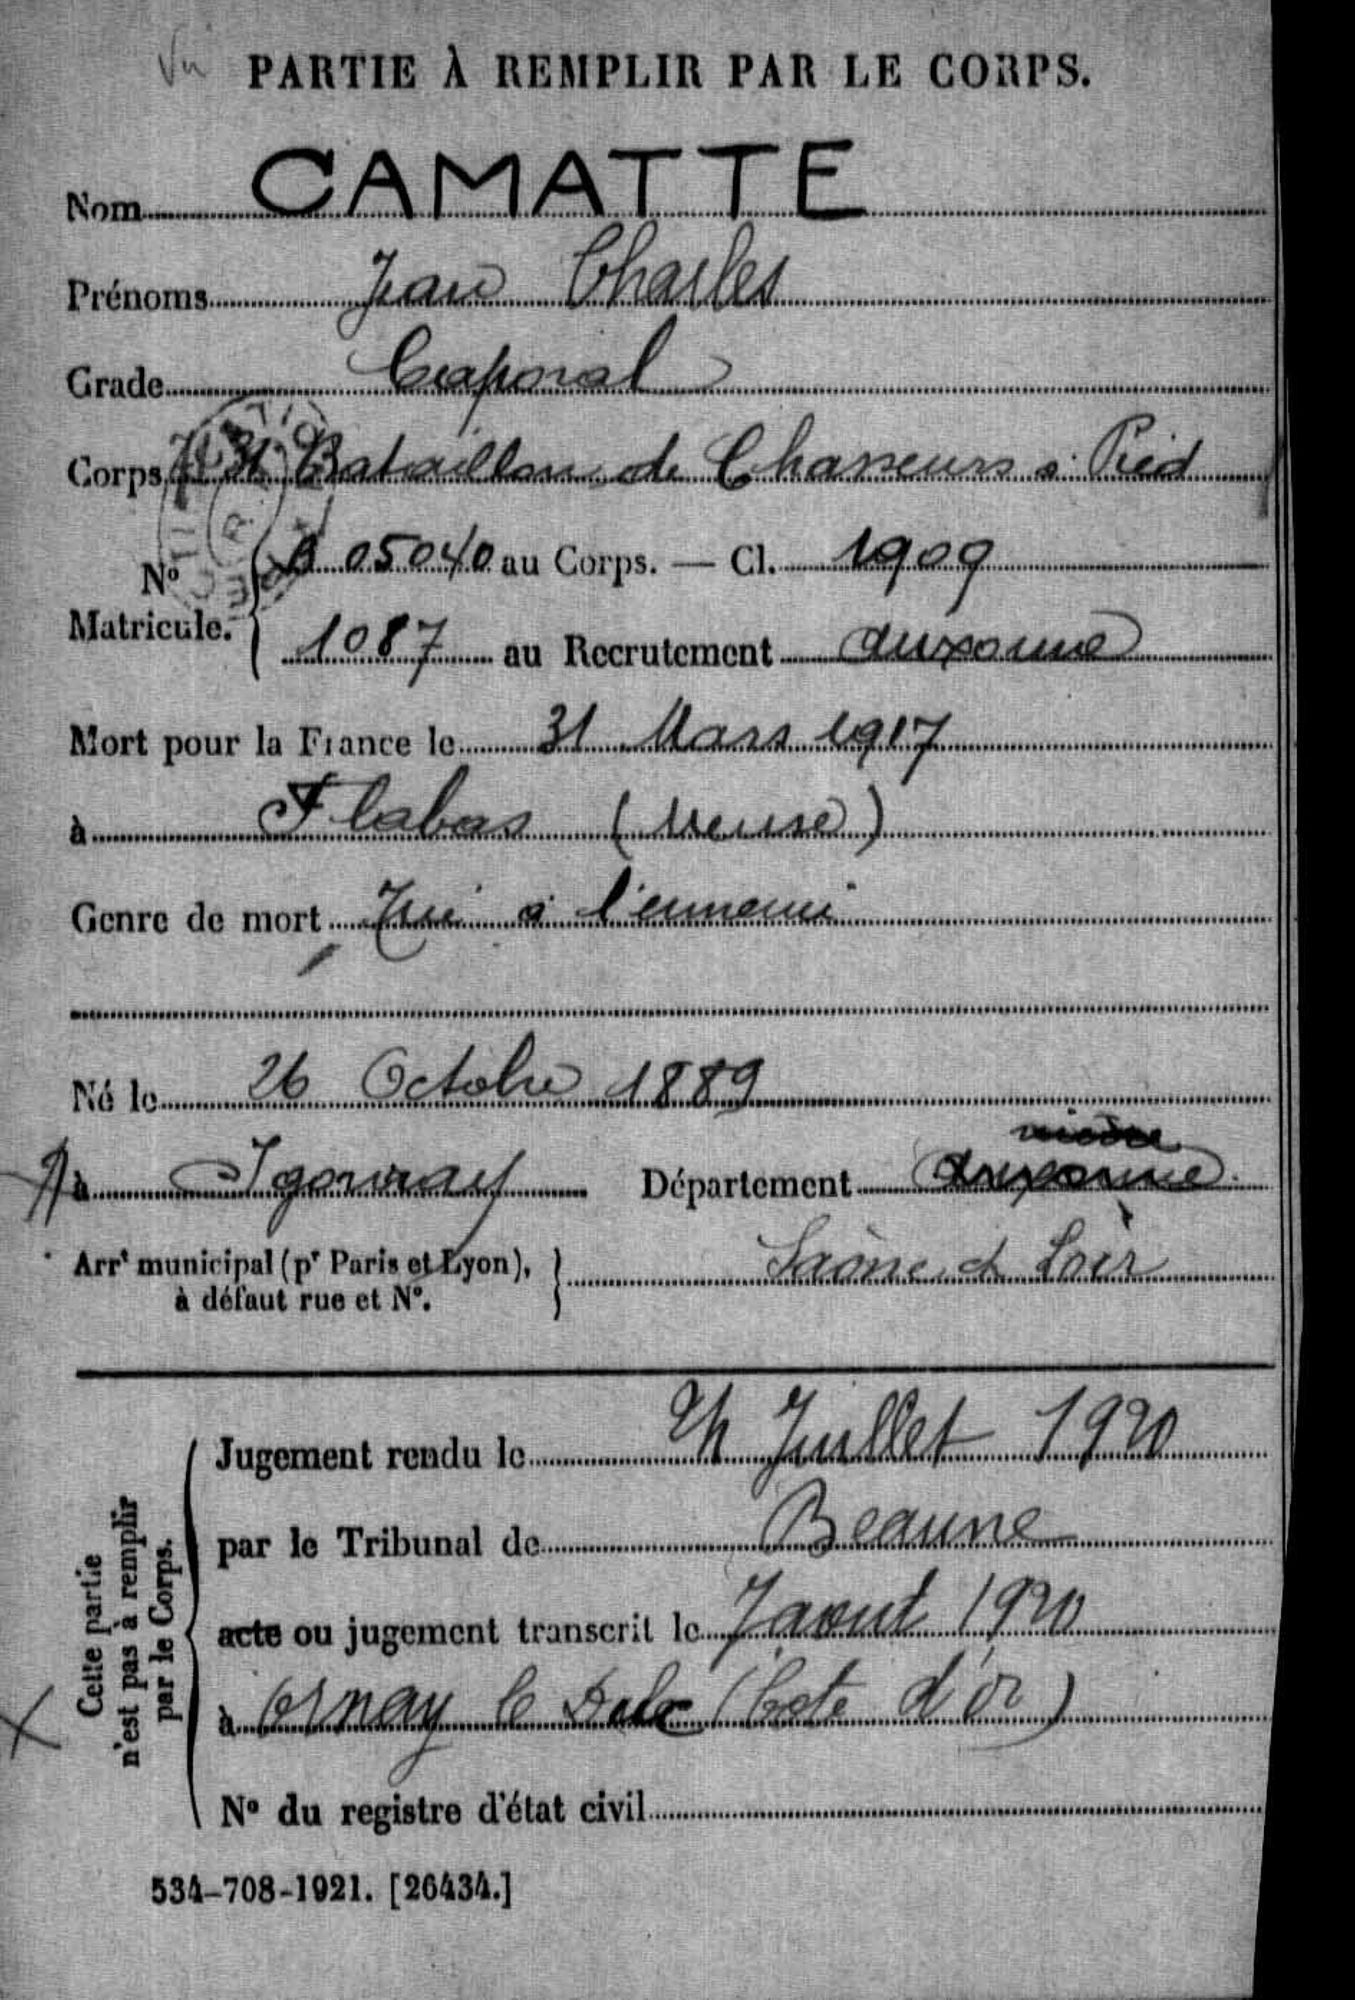 Vu
PARTIE À REMPLIR PAR LE CORPS.
Nom CAMATTE
Prénoms Jean Charles
Grade Caporal
Corps 31 Bataillon de Chasseurs à Pied
No Matricule. { 05040 au Corps. — Cl. 1909
1087 au Recrutement Auxonne
Mort pour la France le 31 Mars 1917
à Flabas (Meuse)
Genre de mort Tué à l'ennemi
Né le 26 Octobre 1889
à Igornay Département Auxonne
Arrt municipal (pr Paris et Lyon), à défaut rue et No. } Saône et Loire
Cette partie n'est pas à remplir par le Corps.
Jugement rendu le Juillet 1920
par le Tribunal de Beaune
acte ou jugement transcrit le 7 aout 1920
à Arnay le Duc (Cote d'or)
No du registre d'état civil
534-708-1921. [26434.]